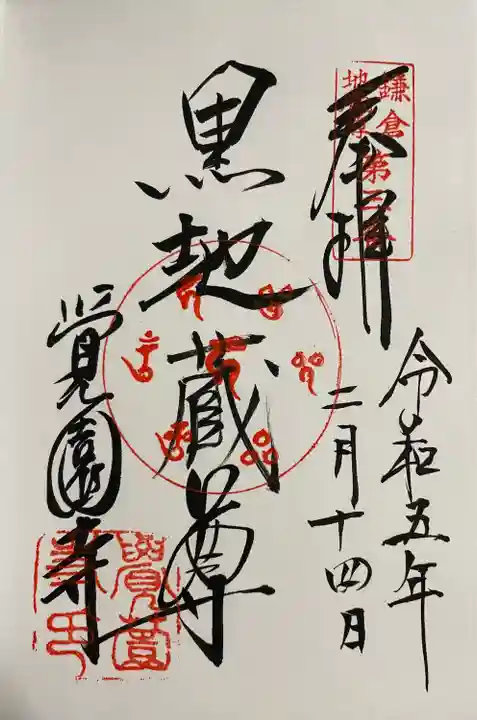 奉拝
鎌倉第三番
地蔵尊
令和五年
二月十四日
黒地蔵尊
覚園寺